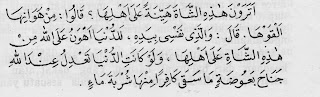 أَتَرَوْنَ هٰذِهِ الشَّاةَ هَيِّنَةً عَلَى أَهْلِهَا ؟ قَالُوْا : مِنْ هَوَانِهَا
أَلْقَوْهَا. قَالَ : وَالَّذِى نَفْسِى بِيَدِهِ ، لَلدُّنْيَا أَهْوَنُ عَلَى اللهِ مِنْ
هٰذِهِ الشَّاةِ عَلَى أَهْلِهَا ، وَلَوْ كَانَتِ الدُّنْيَا تَعْدِلُ عِنْدَ اللهِ
جَنَاحَ بَعُوْضَةٍ مَا سَقَى كَافِرًا مِنْهَا شُرْبَةَ مَاءٍ .